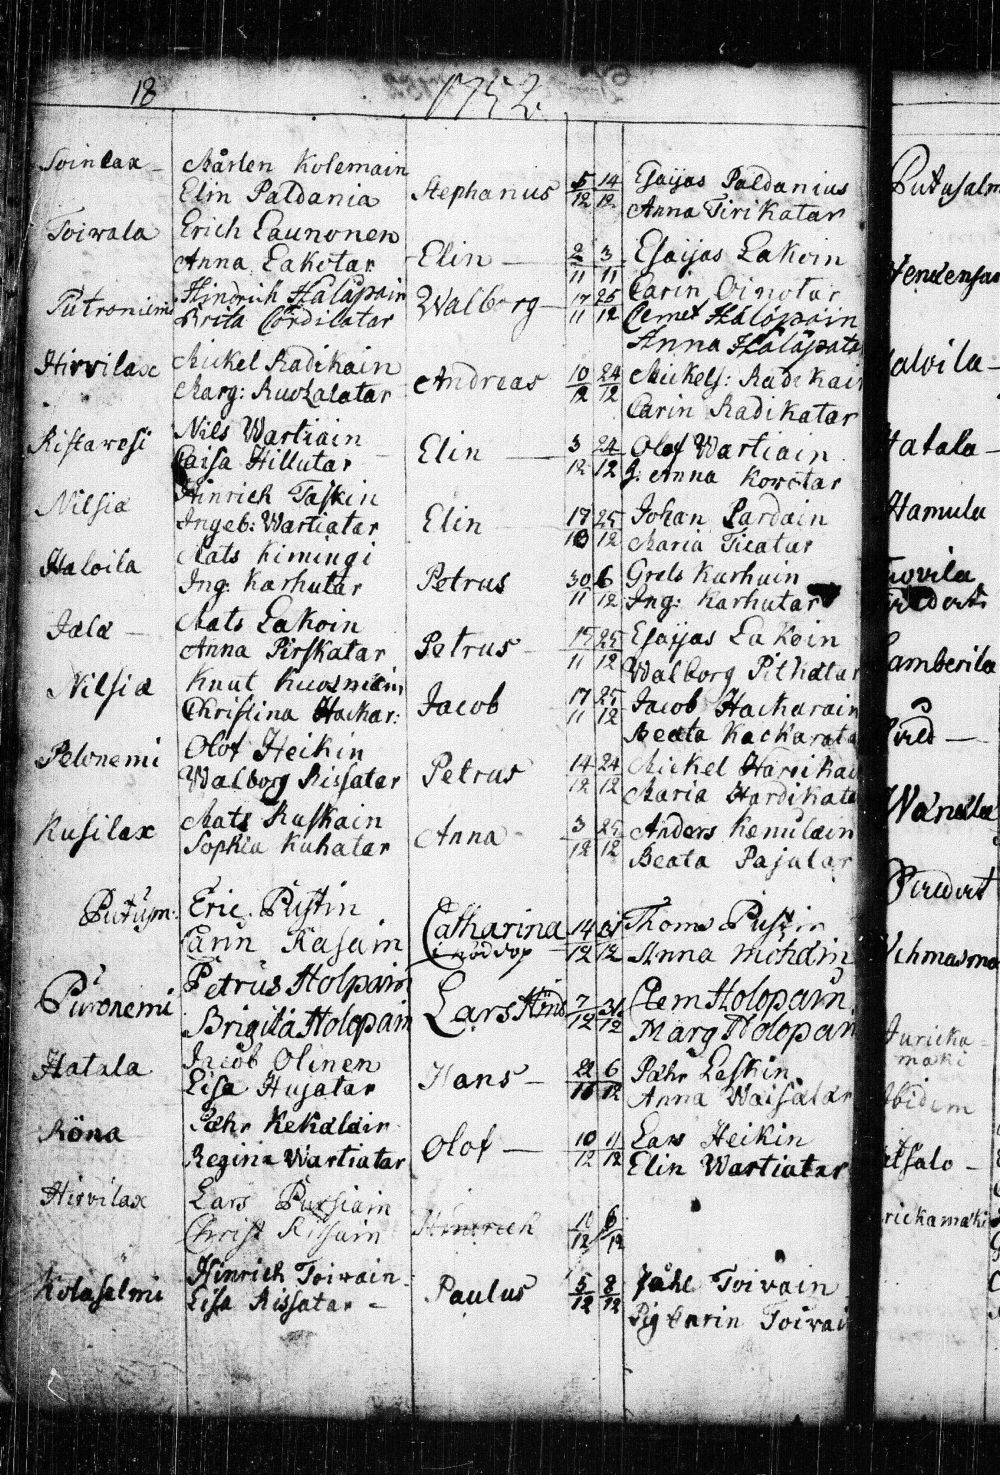 18
1752
Soinlax - Mårten Kolemain
Elin Paldania Stephanus 5/12 14/12 Esaijas Paldanius
Anna Tirikatar
Toiwala Erich Launonen
Anna Lakotar Elin — 2/11 3/11 Esaijas Lakoin
Carin Oinotar
Putroniemi Hindrich Halåpain
Brita Cördilatar Walborg 17/11 26/12 Clemet Halöpain
Anna Halåpatar
Hirvilax Mickel Radikain
Marg: Ruozalatar Andreas 10/12 24/12 Mickels: Radikain
Carin Radikatar
Ristavesi Nils Wartiain
Caisa Hillutar Elin — 3/12 24/12 Olof Wartiain
J: Anna Kovotar
Nilsiä Hinrich Taskin
Ingeb: Wartiatar Elin 17/10 25/12 Johan Pardain
Maria Ticatar
Haloila Mats Kimingi
Ing: Karhutar Petrus 30/11 6/12 Grels Karhuin
Ing: Karhutar
Jälä — Mats Lakoin
Anna Pirskatar Petrus 15/11 25/12 Esaijas Lakoin
Walborg Pitkatar
Nilsiä Knut Kuosmain
Christina Hackar: Jacob 17/11 25/12 Jacob Hackarain
Beata Kackarata
Pelonemi Olof Heikin
Walborg Rissatar Petrus 14/12 24/12 Mickel Hardikain
Maria Hardikata
Kusilax Mats Ruskain
Sophia Kuhatar Anna 3/12 25/12 Anders Kenuläin
Beata Pajatar
Putusm: Eric Pustin
Carin Kasain Catharina 14/12 31/12 Thoms Pustin
i nöddop Anna Mohain
Puronemi Petrus Holpain
Brigita Holopain Lars Hind 7/12 31/12 Clem Holopain
Marg Holopain
Hatala Jacob Olinen
Lisa Husatar Hans — 22/10 6/12 Pähr Leskin
Anna Waisälär
Röna Pæhr Kekäläin
Regina Wartiatar Olof — 10/12 11/12 Lars Heikin
Elin Wartiatar
Hirvilax Lars Pursiain
Christ Risain Hinrich 11/12 6/12
Kolasalmi Hinrich Toivain
Lisa Rissatar - Paulus 5/12 8/12 Påhl Toivain
Pig Carin Toivai
Putusalm
Venäenjä
Hatala -
Hamula
Wanala
Vehmasmä
Juricka
mäki